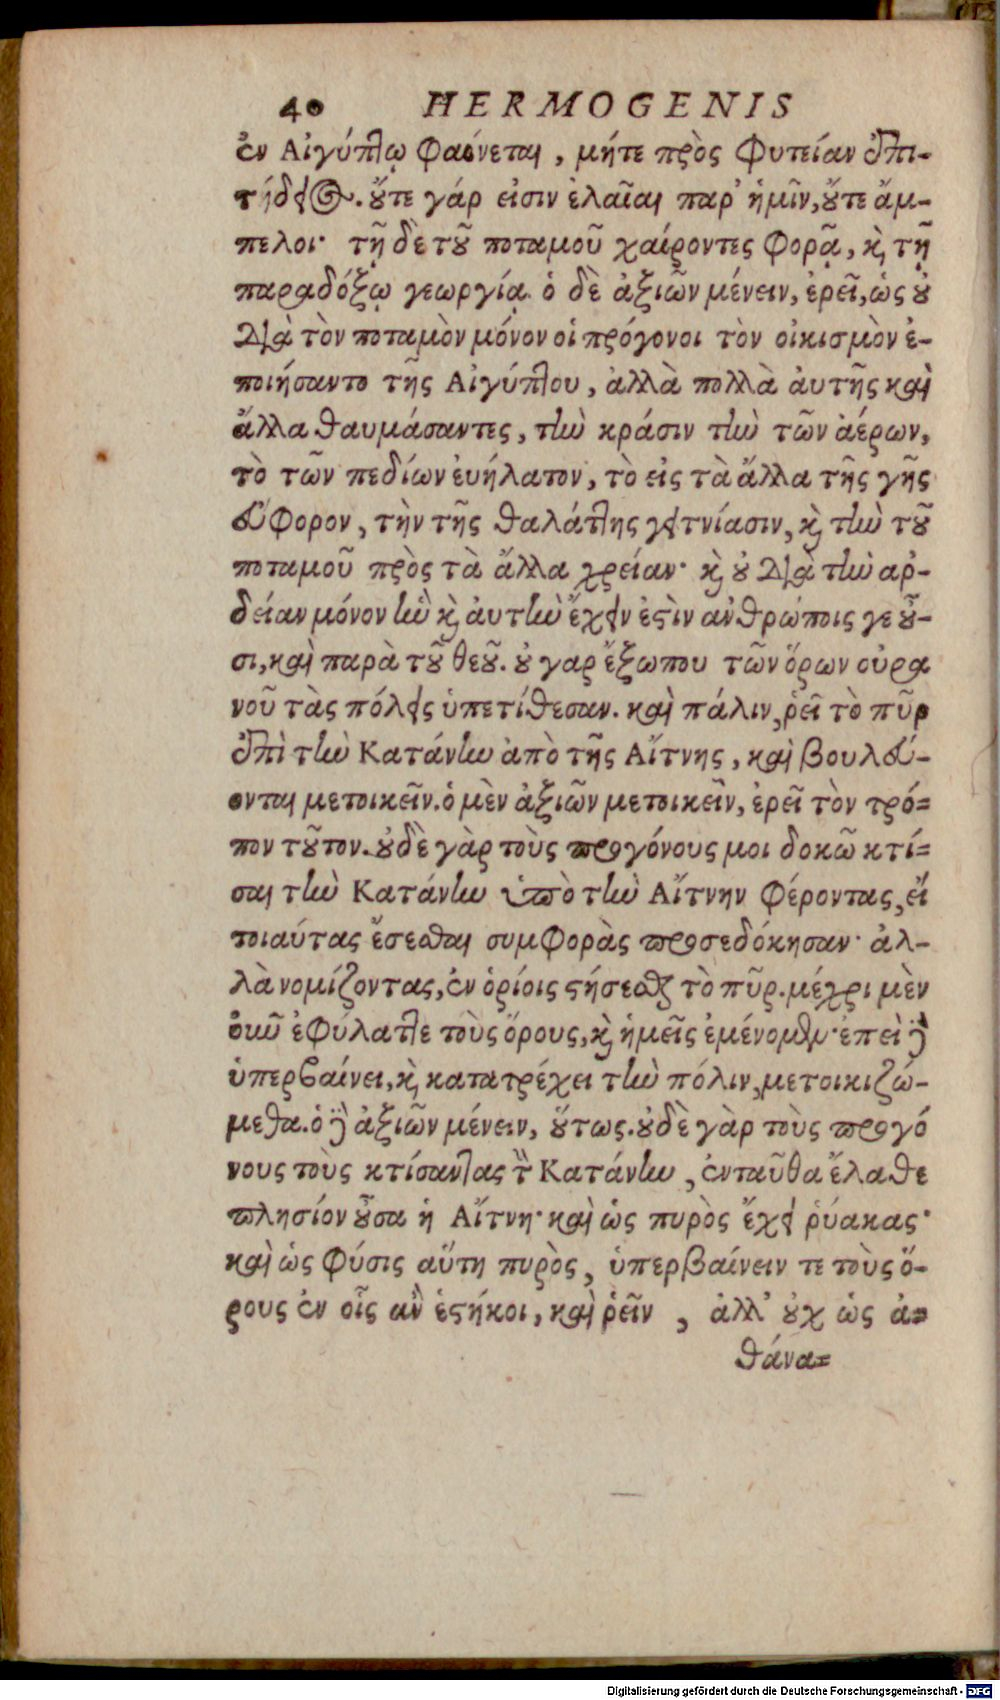 40 HERMOGENIS
ἐν Αἰγύπτῳ φαίνεται, μήτε πρὸς φυτείαν ἐπι-
τήδειος. οὔτε γάρ εἰσιν ἐλαῖαι παρ' ἡμῖν, οὔτε ἄμ-
πελοι· τῇ δὲ τοῦ ποταμοῦ χαίροντες φορᾷ, καὶ τῇ
παραδόξῳ γεωργίᾳ. ὁ δὲ ἀξιῶν μένειν, ἐρεῖ, ὡς οὐ
διὰ τὸν ποταμὸν μόνον οἱ πρόγονοι τὸν οἰκισμὸν ἐ-
ποιήσαντο τῆς Αἰγύπτου, ἀλλὰ πολλὰ ἀυτῆς καὶ
ἄλλα θαυμάσαντες, τὴν κράσιν τὴν τῶν ἀέρων,
τὸ τῶν πεδίων ἐυήλατον, τὸ εἰς τὰ ἄλλα τῆς γῆς
εὔφορον, τὴν τῆς θαλάττης γειτνίασιν, καὶ τὴν τοῦ
ποταμοῦ πρὸς τὰ ἄλλα χρείαν· καὶ οὐ διὰ τὴν αρ-
δείαν μόνον ἣν καὶ ἀυτὴν ἔχειν ἐστὶν ανθρώποις γε οὖ-
σι, καὶ παρὰ τοῦ θεοῦ. οὐ γαρ ἔξωπου τῶν ὅρων οὐρα
νοῦ τὰς πόλεις ὑπετίθεσαν. καὶ πάλιν, ῥεῖ τὸ πῦρ
ἐπὶ τὴν Κατάνην ἀπὸ τῆς Αἴτνης, καὶ βουλεύ-
ονται μετοικεῖν. ὁ μὲν ἀξιῶν μετοικεῖν, ἐρεῖ τὸν τρό=
πον τοῦτον. οὐδὲ γὰρ τοὺς προγόνους μοι δοκῶ κτί=
σαι τὴν Κατάνην ὑπὸ τὴν Αἴτνην φέροντας, εἴ
τοιαύτας ἔσεσθαι συμφορὰς προσεδόκησαν· ἀλ-
λὰ νομίζοντας, ἐν ὁρίοις στήσεσθαι τὸ πῦρ. μέχρι μὲν
οὖν ἐφύλαττε τοὺς ὅρους, καὶ ἡμεῖς ἐμένομεν· ἐπεὶ δὲ
ὑπερβαίνει, καὶ κατατρέχει τὴν πόλιν, μετοικιζώ-
μεθα. ὁ δὲ ἀξιῶν μένειν, οὕτως. οὐδὲ γὰρ τοὺς προγό
νους τοὺς κτίσαντας τὴν Κατάνην, ἐνταῦθα ἔλαθε
πλησίον οὖσα ἡ Αἴτνη· καὶ ὡς πυρὸς ἔχει ῥύακας·
καὶ ὡς φύσις αὕτη πυρὸς, ὑπερβαίνειν τε τοὺς ὅ-
ρους ἐν οἷς ἂν ἑστήκοι, καὶ ῥεῖν, ἀλλ' οὐχ ὡς ἀ=
θάνα=
Digitalisierung gefördert durch die Deutsche Forschungsgemeinschaft - DFG